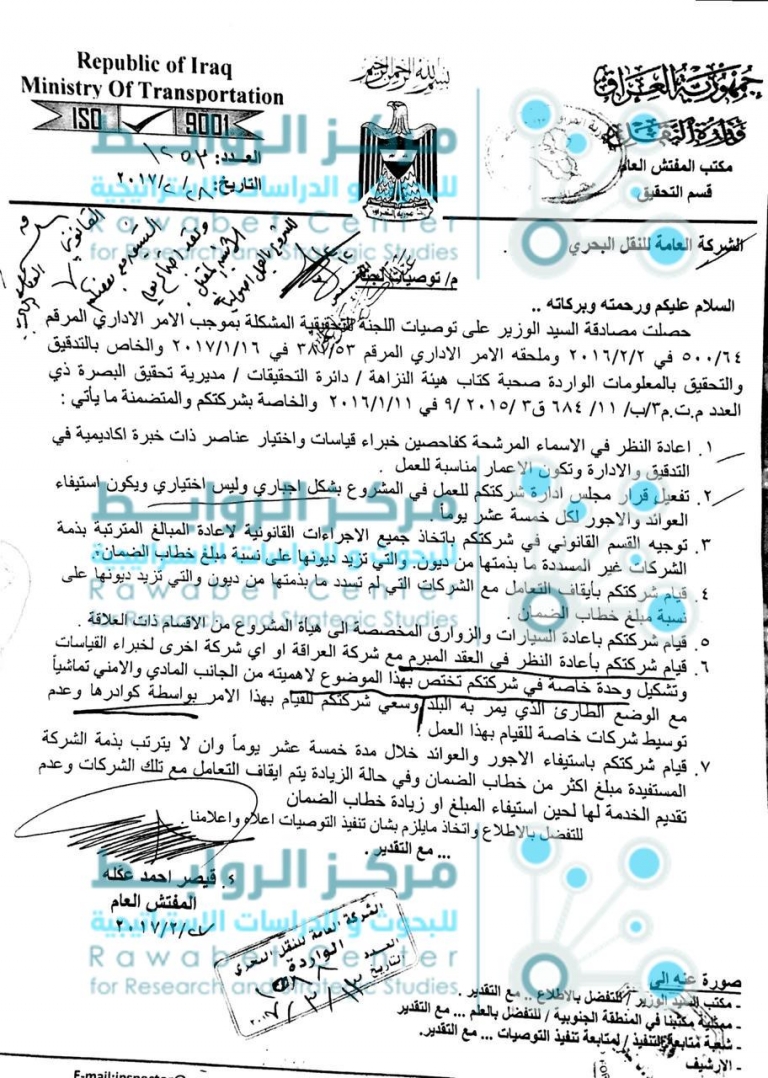 بسم الله الرحمن الرحيم
Republic of Iraq
Ministry Of Transportation
ISO 9001
جمهورية العراق
وزارة النقل
مكتب المفتش العام
قسم التحقيق
العدد: ١٢٥٣
التاريخ: ٢٨/٢/٢٠١٧
الشركة العامة للنقل البحري .
م/ توصيات لجنة
السلام عليكم ورحمته وبركاته ..
حصلت مصادقة السيد الوزير على توصيات اللجنة التحقيقية المشكلة بموجب الامر الاداري المرقم
٥٠٠/٦٤ في ٢٠١٦/٢/٢ وملحقه الامر الاداري المرقم ٣٨٧/٥٣ في ٢٠١٧/١/١٦ والخاص بالتدقيق
والتحقيق بالمعلومات الواردة صحبة كتاب هيئة النزاهة / دائرة التحقيقات / مديرية تحقيق البصرة ذي
العدد م.ت.م٣/ب/ ١١/ ٦٨٤ ق٣ /٢٠١٥ /٩ في ٢٠١٦/١/١١ والخاصة بشركتكم والمتضمنة ما يأتي :
١. اعادة النظر في الاسماء المرشحة كفاحصين خبراء قياسات واختيار عناصر ذات خبرة اكاديمية في
التدقيق والادارة وتكون الاعمار مناسبة للعمل .
٢. تفعيل قرار مجلس ادارة شركتكم للعمل في المشروع بشكل اجباري وليس اختياري ويكون استيفاء
العوائد والاجور لكل خمسة عشر يوماً .
٣. توجيه القسم القانوني في شركتكم باتخاذ جميع الاجراءات القانونية لاعادة المبالغ المترتبة بذمة
الشركات غير المسددة ما بذمتها من ديون. والتي تزيد ديونها على نسبة مبلغ خطاب الضمان.
٤. قيام شركتكم بأيقاف التعامل مع الشركات التي لم تسدد ما بذمتها من ديون والتي تزيد ديونها على
نسبة مبلغ خطاب الضمان .
٥. قيام شركتكم باعادة السيارات والزوارق المخصصة الى هيأة المشروع من الاقسام ذات العلاقة .
٦. قيام شركتكم بأعادة النظر في العقد المبرم مع شركة العراقة او اي شركة اخرى لخبراء القياسات
وتشكيل وحدة خاصة في شركتكم تختص بهذا الموضوع لاهميته من الجانب المادي والامني تماشياً
مع الوضع الطارئ الذي يمر به البلد وسعي شركتكم للقيام بهذا الامر بواسطة كوادرها وعدم
توسيط شركات خاصة للقيام بهذا العمل .
٧. قيام شركتكم باستيفاء الاجور والعوائد خلال مدة خمسة عشر يوماً وان لا يترتب بذمة الشركة
المستفيدة مبلغ اكثر من خطاب الضمان وفي حالة الزيادة يتم ايقاف التعامل مع تلك الشركات وعدم
تقديم الخدمة لها لحين استيفاء المبلغ او زيادة خطاب الضمان
للتفضل بالاطلاع واتخاذ مايلزم بشان تنفيذ التوصيات اعلاه واعلامنا .
... مع التقدير .
د. قيصر احمد عكله
المفتش العام
٢٠١٧/٢/٢٨
الشركة العامة للنقل البحري
الواردة
العدد
التاريخ
صورة عنه الى
- مكتب السيد الوزير / للتفضل بالاطلاع .. مع التقدير .
- ممثلية مكتبنا في المنطقة الجنوبية / للتفضل بالعلم ... مع التقدير
- شعبة متابعة التنفيذ / لمتابعة تنفيذ التوصيات ... مع التقدير.
- الارشيف
مركز الروابط
للبحوث و الدراسات الاستراتيجية
Rawabet Center
for Research and Strategic Studies
مركز الروابط
للبحوث و الدراسات الاستراتيجية
Rawabet Center
for Research and Strategic Studies
مركز الروابط
للبحوث و الدراسات الاستراتيجية
Rawabet Center
for Research and Strategic Studies